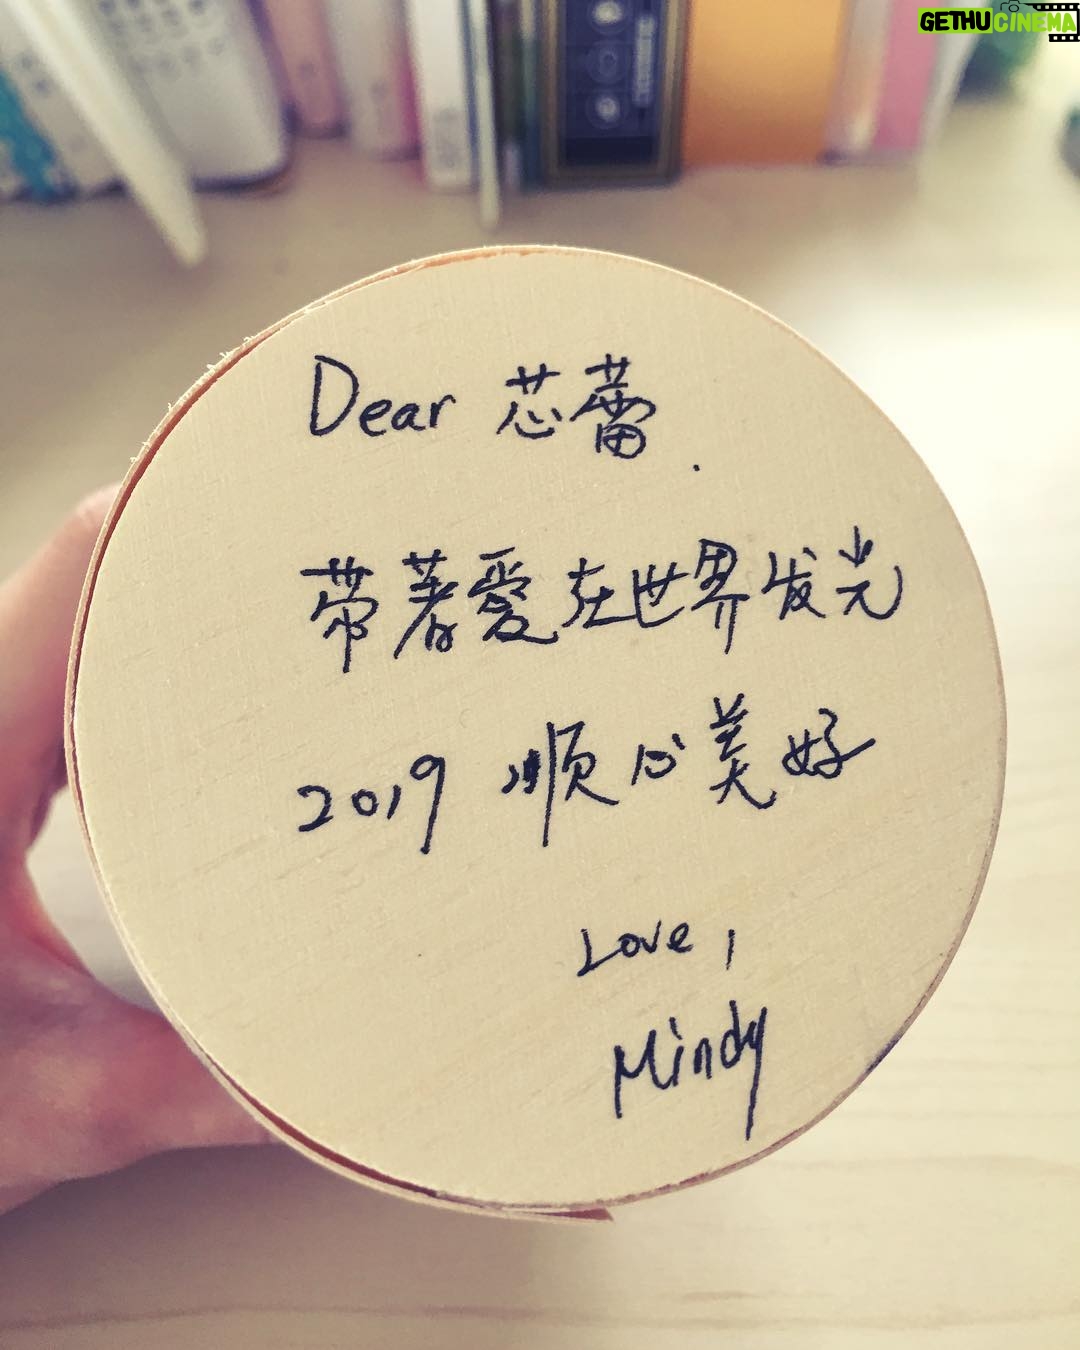 GETHUCINEMA
Dear 芯蕾.
带著愛在世界发光
2019 顺心美好
Love,
Mindy